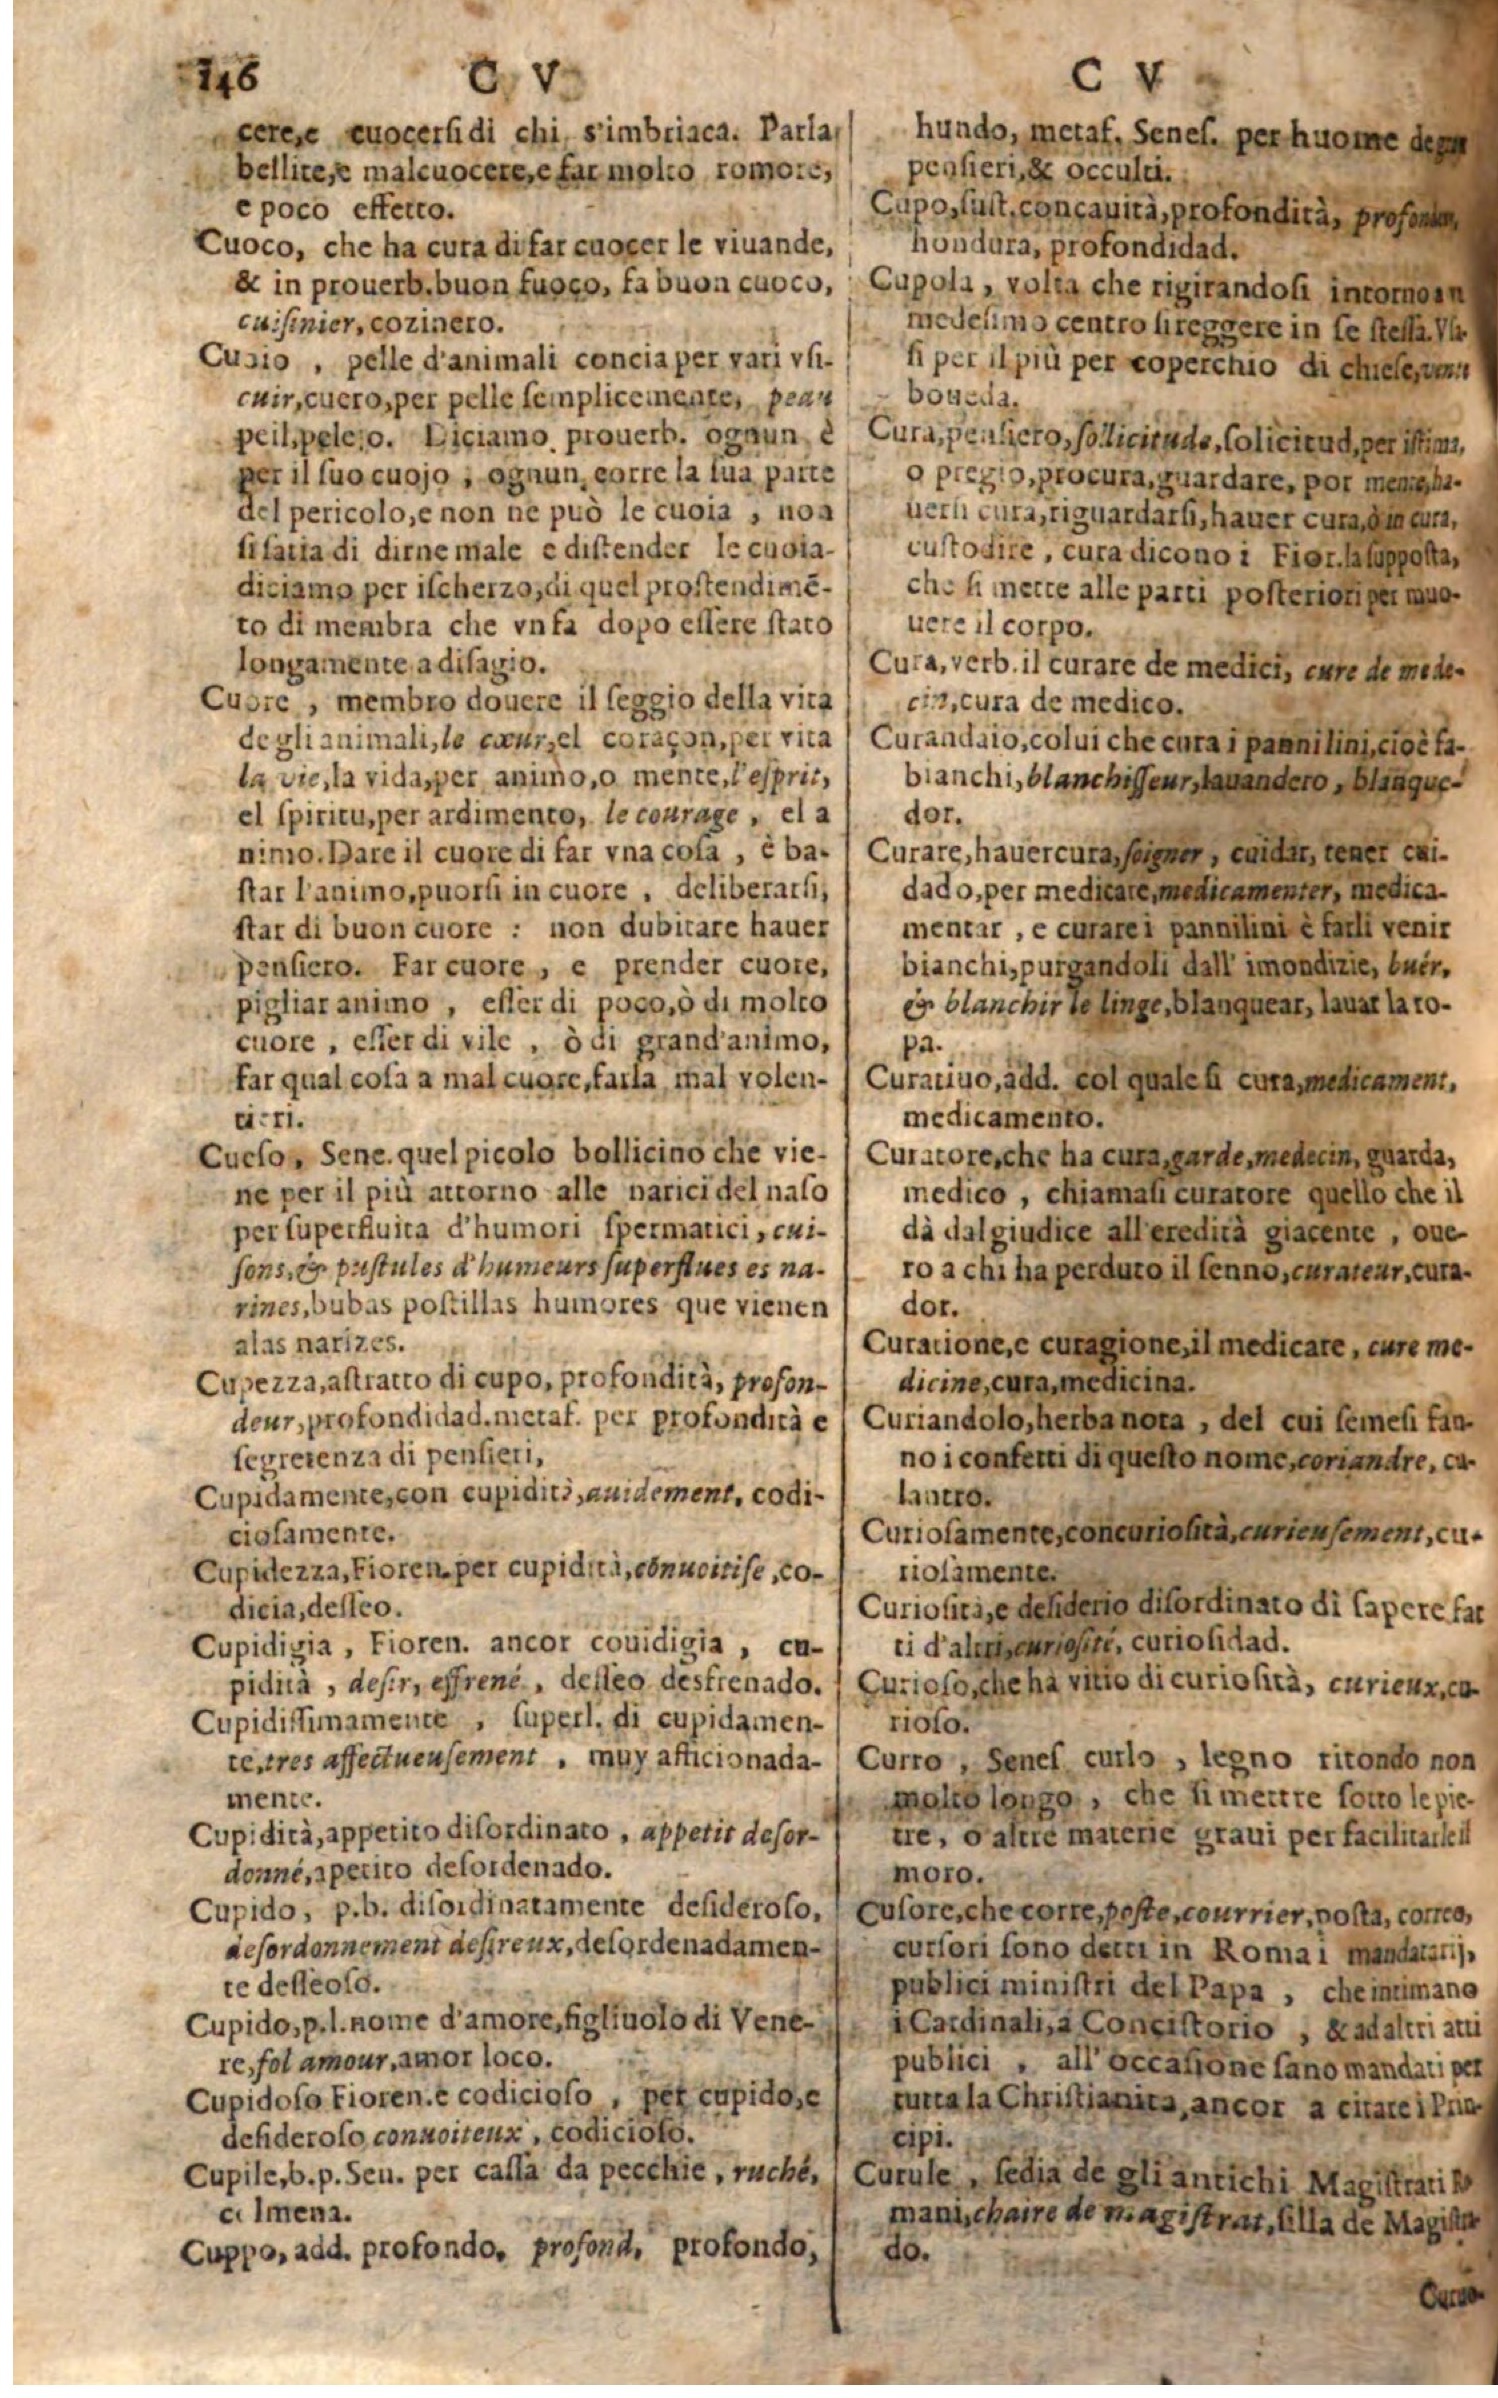 146 C V C V
cere,e cuocersi di chi s'imbriaca. Parla
bellire,e malcuocere,e far molto romore,
e poco effetto.
Cuoco, che ha cura di far cuocer le viuande,
& in prouerb.buon fuoco, fa buon cuoco,
cuiſinier, cozinero.
Cuoio , pelle d'animali concia per vari vſi-
cuir,cuero,per pelle ſemplicemente, peau
peil,pelejo. Diciamo prouerb. ognun è
per il ſuo cuojo , ognun corre la ſua parte
del pericolo,e non ne può le cuoia , non
ſi ſatia di dirne male e diſtender le cuoia-
diciamo per iſcherzo,di quel proſtendimē-
to di membra che vn fa dopo eſſere ſtato
longamente a diſagio.
Cuore , membro douere il ſeggio della vita
de gli animali,le cœur,el coraçon,per vita
la vie,la vida,per animo,o mente,l'eſprit,
el ſpiritu,per ardimento, le courage , el a
nimo.Dare il cuore di far vna coſa , è ba-
ſtar l'animo,puorſi in cuore , deliberarſi,
ſtar di buon cuore : non dubitare hauer
penſiero. Far cuore , e prender cuore,
pigliar animo , eſſer di poco,ò di molto
cuore , eſſer di vile , ò di grand'animo,
far qual coſa a mal cuore,farla mal volen-
tieri.
Cueſo, Sene.quel picolo bollicino che vie-
ne per il più attorno alle narici del naſo
per ſuperfluita d'humori ſpermatici, cui-
ſons,& puſtules d'humeurs ſuperflues es na-
rines,bubas poſtillas humores que vienen
alas narizes.
Cupezza,aſtratto di cupo, profondità, profon-
deur,profondidad.metaf. per profondità e
ſegretenza di penſieri,
Cupidamente,con cupidità,auidement, codi-
cioſamente.
Cupidezza,Fioren.per cupidità,cōnuoitiſe ,co-
dicia,deſſeo.
Cupidigia , Fioren. ancor couidigia , cu-
pidità , deſir, effrené , deſſeo desfrenado.
Cupidiſſimamente , ſuperl. di cupidamen-
te,tres affectueuſement , muy afficionada-
mente.
Cupidità,appetito diſordinato , appetit deſor-
donné,apetito deſordenado.
Cupido, p.b. diſordinatamente deſideroſo,
deſordonnement deſireux,deſordenadamen-
te deſſeoſo.
Cupido,p.l.nome d'amore,figliuolo di Vene-
re,fol amour,amor loco.
Cupidoſo Fioren.e codicioſo , per cupido,e
deſideroſo conuoiteux , codicioſo.
Cupile,b.p.Sen. per caſſa da pecchie , ruché,
colmena.
Cuppo, add. profondo, profond, profondo,
hundo, metaf. Seneſ. per huome de
penſieri,& occulti.
Cupo,ſuſt.concauità,profondità,
hondura, profondidad.
Cupola , volta che rigirandoſi intorno a vn
medeſimo centro ſi reggere in ſe ſteſſa. Vſa-
ſi per il più per coperchio di chieſe,
boueda.
Cura,penſiero,ſollicitude,ſolicitud,per iſtima,
o pregio,procura,guardare, por mente,ha-
uerſi cura,riguardarſi,hauer cura,ò in cura,
cuſtodire , cura dicono i Fior.la ſuppoſta,
che ſi mette alle parti poſteriori per muo-
uere il corpo.
Cura,verb.il curare de medici, cure de mede-
cin,cura de medico.
Curandaio,colui che cura i pannilini,cioè fa-
bianchi,blanchiſſeur,lauandero , blanque-
dor.
Curare,hauercura,ſoigner , cuidar, tener cui-
dado,per medicare,medicamenter, medica-
mentar , e curare i pannilini è farli venir
bianchi,purgandoli dall' imondizie, buér,
& blanchir le linge,blanquear, lauar la ro-
pa.
Curatiuo,add. col quale ſi cura,medicament,
medicamento.
Curatore,che ha cura,garde,medecin, guarda,
medico , chiamaſi curatore quello che il
dà dal giudice all'eredità giacente , oue-
ro a chi ha perduto il ſenno,curateur,cura-
dor.
Curatione,e curagione,il medicare , cure me-
dicine,cura,medicina.
Curiandolo,herba nota , del cui ſemeſi fan-
no i confetti di queſto nome,coriandre, cu-
lantro.
Curioſamente,concurioſità,curieuſement,cu-
rioſamente.
Curioſità,e deſiderio diſordinato di ſapere fat
ti d'altri,curioſité, curioſidad.
Curioſo,che ha vitio di curioſità, curieux,cu-
rioſo.
Curro , Seneſ curlo , legno ritondo non
molto longo , che ſi mettre ſotto le pie-
tre, o altre materie graui per facilitarle il
moro.
Cuſore,che corre,poſte,courrier,poſta, correo,
curſori ſono detti in Roma i mandatarij,
publici miniſtri del Papa , che intimano
i Cardinali,a Conciſtorio , & ad altri atti
publici , all' occaſione ſano mandati per
tutta la Chriſtianita,ancor a citare i Prin-
cipi.
Curule , ſedia de gli antichi Magiſtrati Ro
mani,chaire de magiſtrat,ſilla de Magiſtra-
do.